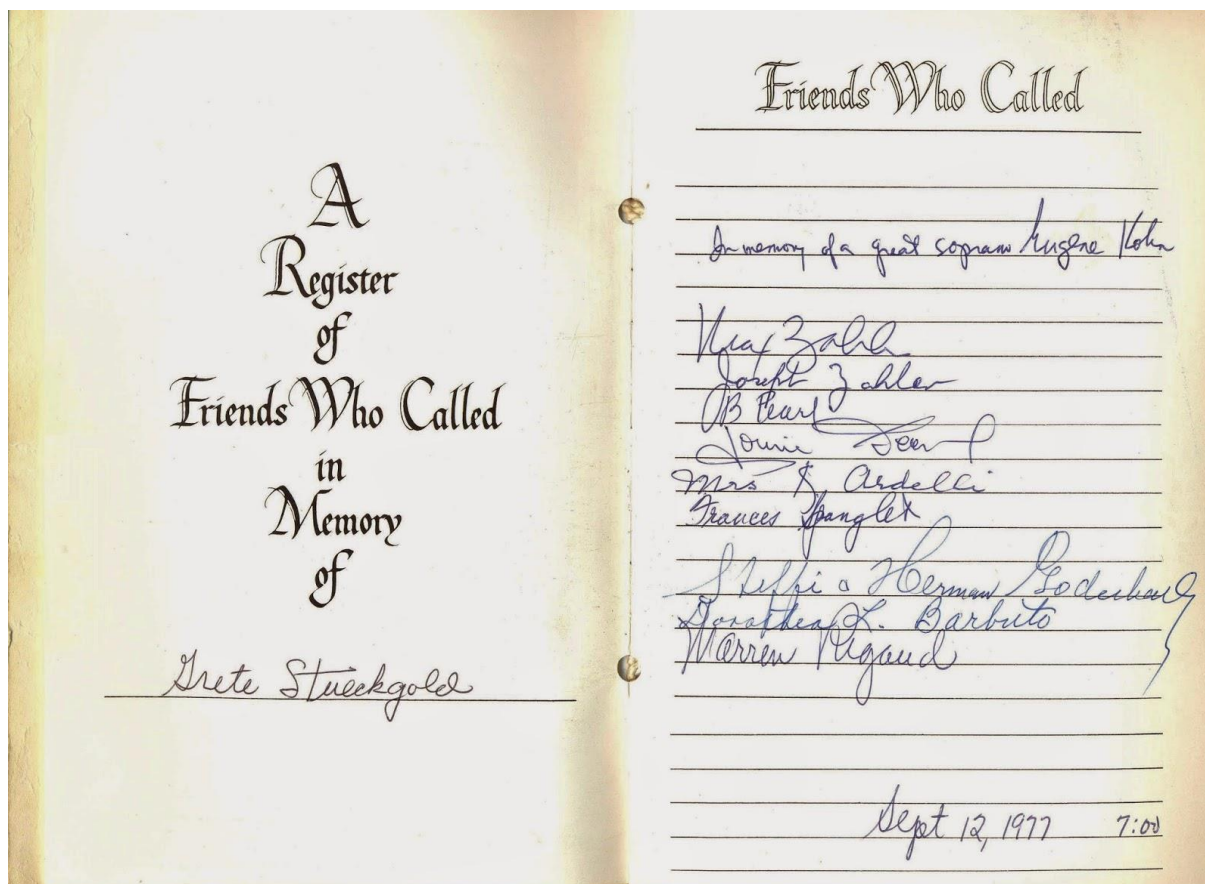 A
Register
of
Friends Who Called
in
Memory
of
Grete Stueckgold
Friends Who Called
In memory of a great soprano Eugene Kohn
Max
Joseph Zahler
B Pearl
Mrs K Ardelli
Frances Spangler
Steffi & Herman
Dorothea L. Barbuto
Warren Rigaud
Sept 12, 1977 7:00